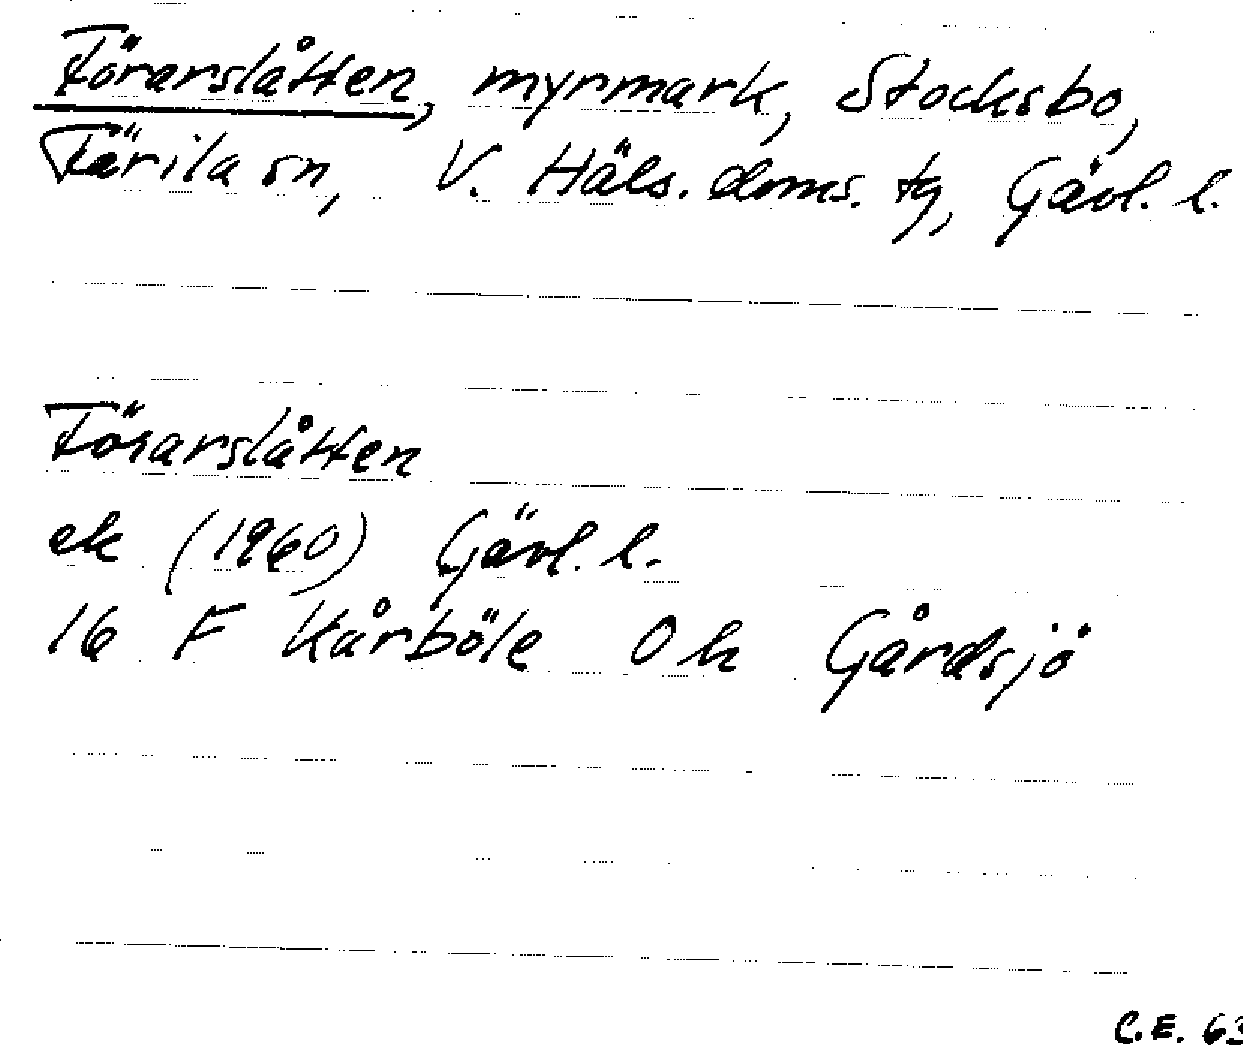 Förarslåtten, myrmark, Stocksbo,
Färila sn, V. Häls. doms. tg, Gävl. l.
Förarslåtten
ek (1960) Gävl. l.
16 F Kårböle 0 h Gårdsjö
C.E. 63